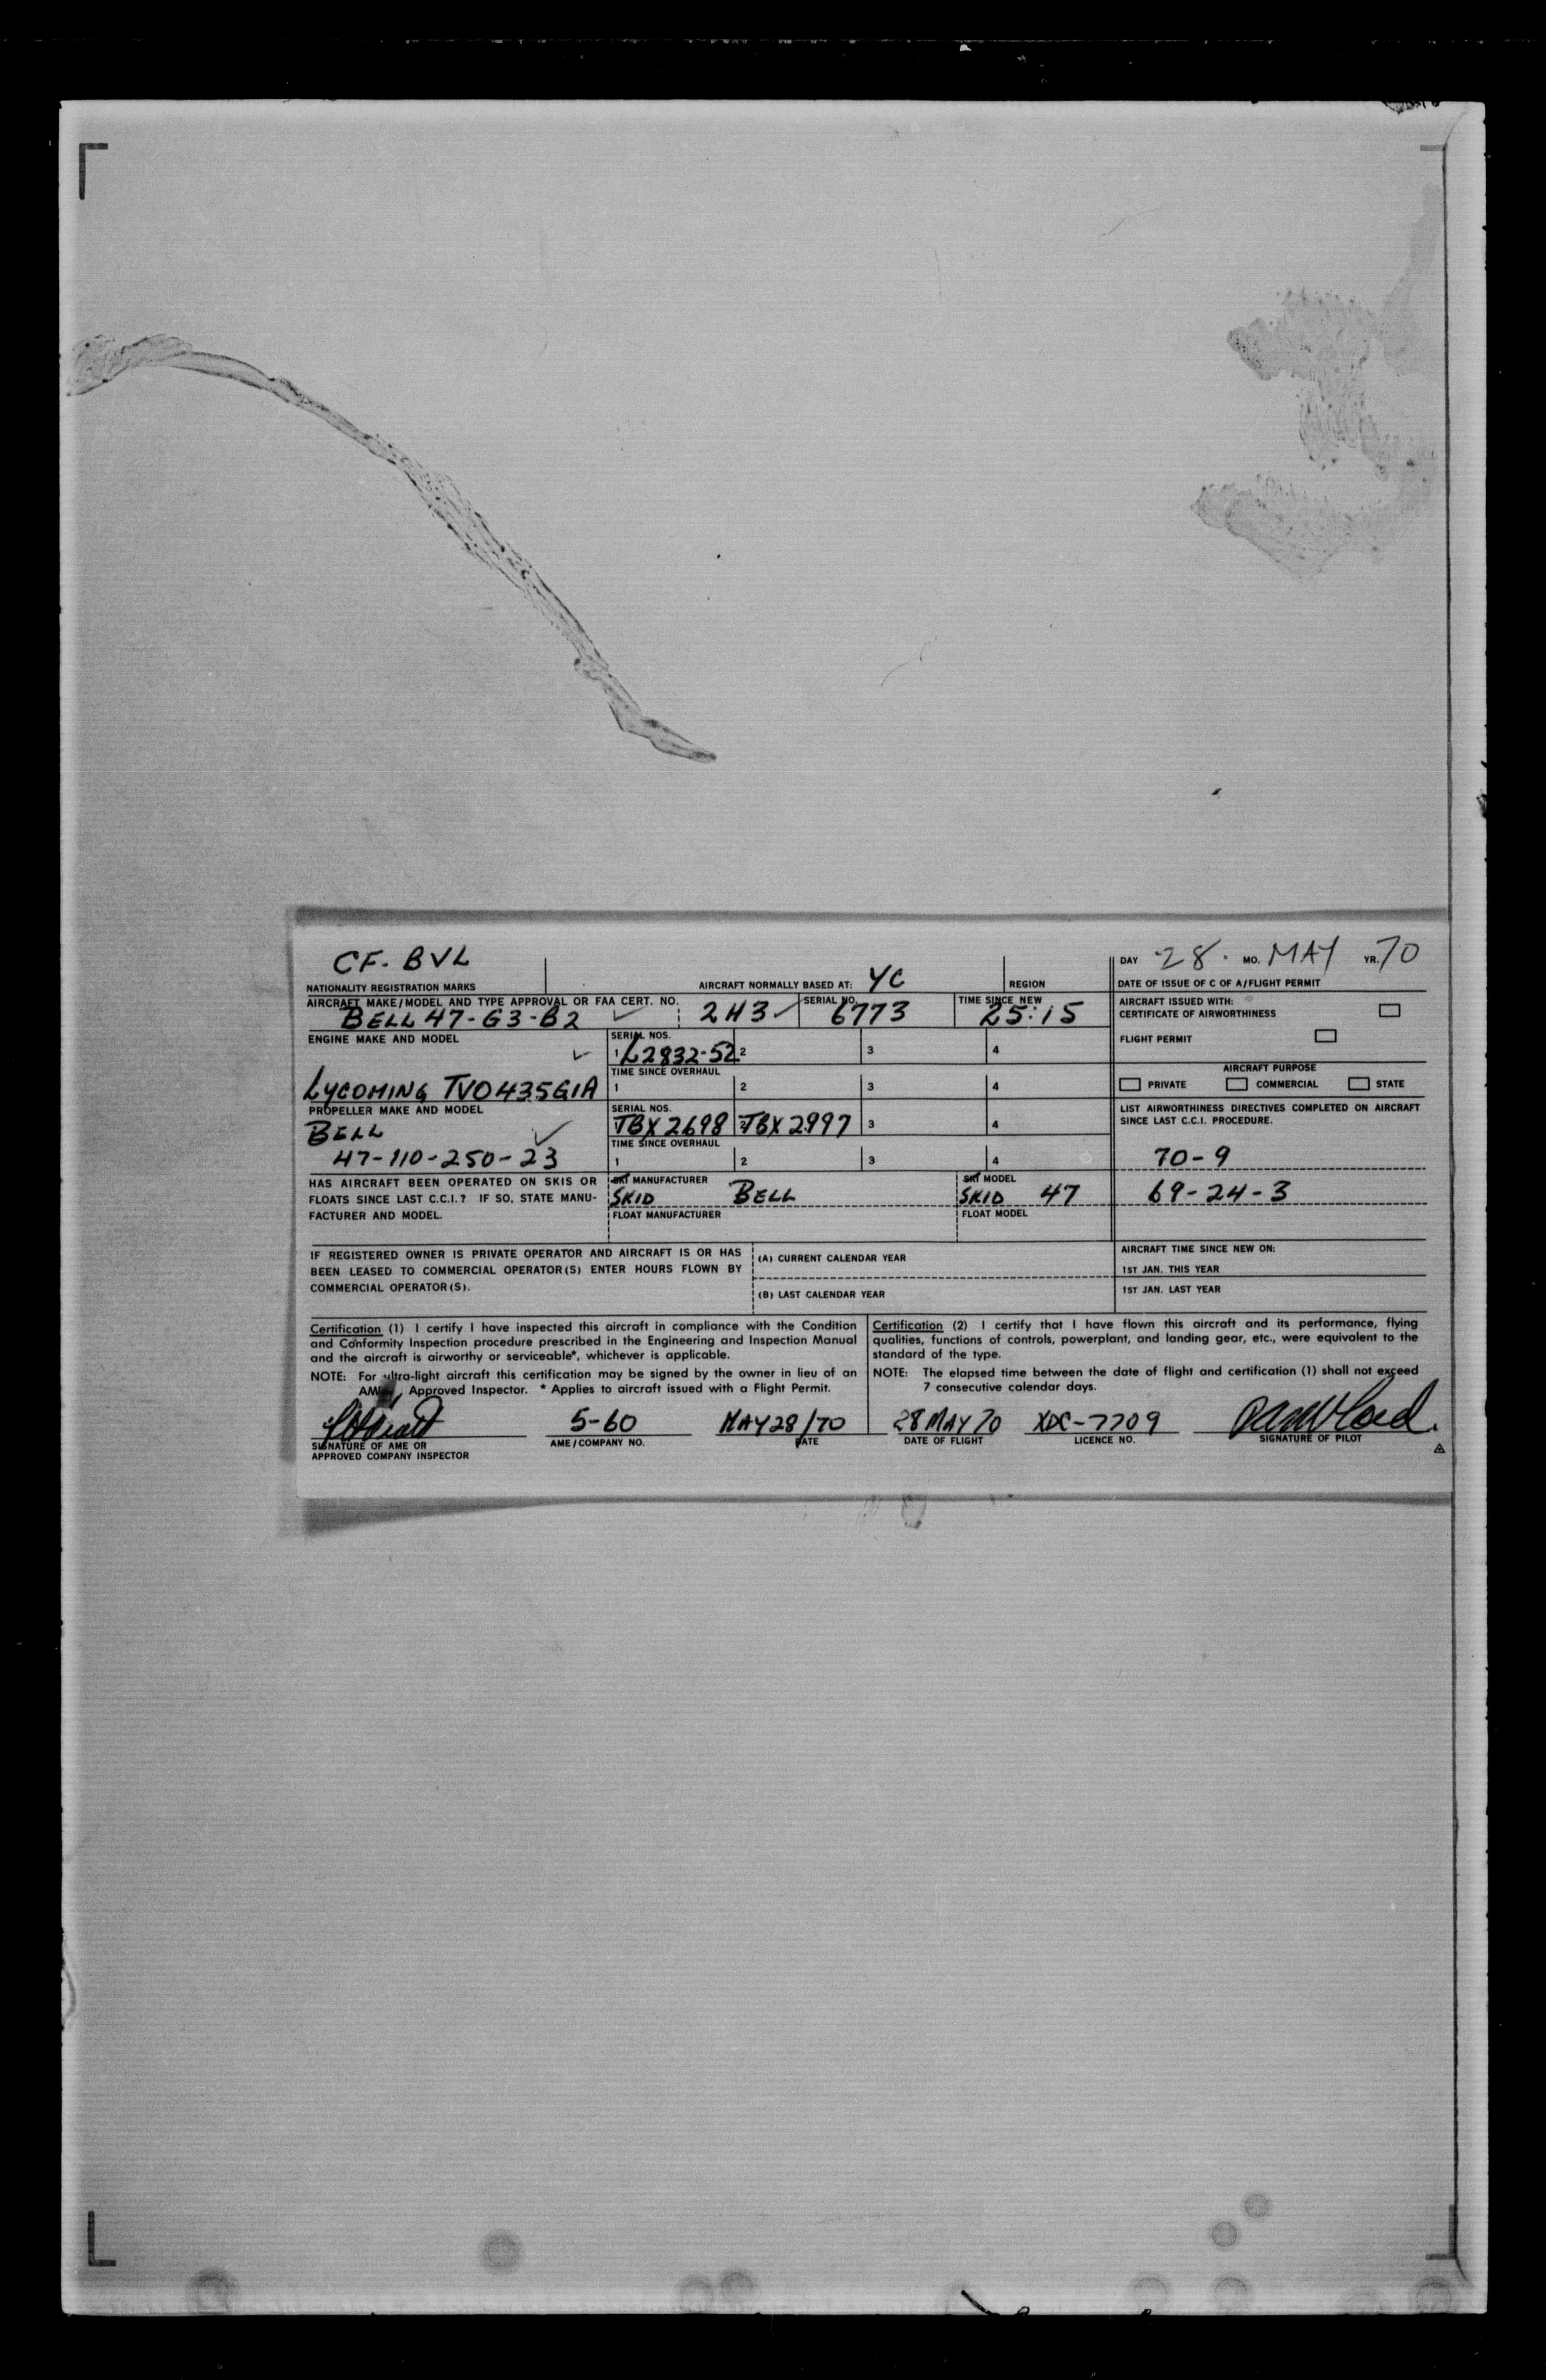 CF-BVL
NATIONALITY REGISTRATION MARKS
AIRCRAFT NORMALLY BASED AT: YC
REGION
DAY 28 MO. MAY YR. 70
DATE OF ISSUE OF C OF A/FLIGHT PERMIT
AIRCRAFT MAKE/MODEL AND TYPE APPROVAL OR FAA CERT. NO.
BELL 47-G3-B2
2H3
SERIAL NO.
6773
TIME SINCE NEW
25:15
AIRCRAFT ISSUED WITH:
CERTIFICATE OF AIRWORTHINESS
FLIGHT PERMIT
ENGINE MAKE AND MODEL
LYCOMING TVO435G1A
SERIAL NOS.
1 L2832-52 2 3 4
TIME SINCE OVERHAUL
1 2 3 4
AIRCRAFT PURPOSE
PRIVATE COMMERCIAL STATE
PROPELLER MAKE AND MODEL
BELL
47-110-250-23
SERIAL NOS.
TBX 2698 TBX 2997 3 4
TIME SINCE OVERHAUL
1 2 3 4
LIST AIRWORTHINESS DIRECTIVES COMPLETED ON AIRCRAFT
SINCE LAST C.C.I. PROCEDURE.
70-9
69-24-3
HAS AIRCRAFT BEEN OPERATED ON SKIS OR
FLOATS SINCE LAST C.C.I.? IF SO, STATE MANU-
FACTURER AND MODEL.
SKI MANUFACTURER
SKID BELL
FLOAT MANUFACTURER
SKI MODEL
SKID 47
FLOAT MODEL
IF REGISTERED OWNER IS PRIVATE OPERATOR AND AIRCRAFT IS OR HAS
BEEN LEASED TO COMMERCIAL OPERATOR(S) ENTER HOURS FLOWN BY
COMMERCIAL OPERATOR(S).
(A) CURRENT CALENDAR YEAR
(B) LAST CALENDAR YEAR
AIRCRAFT TIME SINCE NEW ON:
1ST JAN. THIS YEAR
1ST JAN. LAST YEAR
Certification (1) I certify I have inspected this aircraft in compliance with the Condition
and Conformity Inspection procedure prescribed in the Engineering and Inspection Manual
and the aircraft is airworthy or serviceable*, whichever is applicable.
NOTE: For ultra-light aircraft this certification may be signed by the owner in lieu of an
Approved Inspector. * Applies to aircraft issued with a Flight Permit.
5-60
MAY 28/70
SIGNATURE OF AME OR
APPROVED COMPANY INSPECTOR
AME/COMPANY NO.
DATE
Certification (2) I certify that I have flown this aircraft and its performance, flying
qualities, functions of controls, powerplant, and landing gear, etc., were equivalent to the
standard of the type.
NOTE: The elapsed time between the date of flight and certification (1) shall not exceed
7 consecutive calendar days.
28 MAY 70
XDC-7709
DATE OF FLIGHT
LICENCE NO.
SIGNATURE OF PILOT